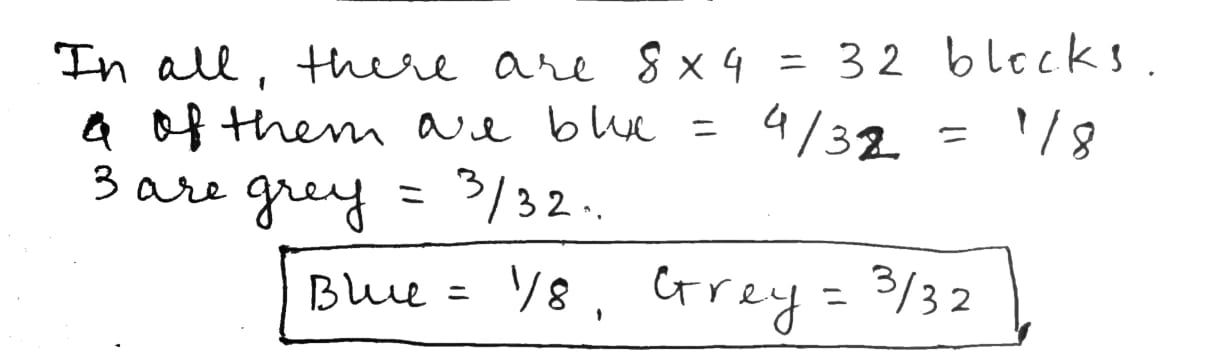 In all, there are 8 x 4 = 32 blocks.
4 of them are blue = 4/32 = 1/8
3 are grey = 3/32..
Blue = 1/8, Grey = 3/32